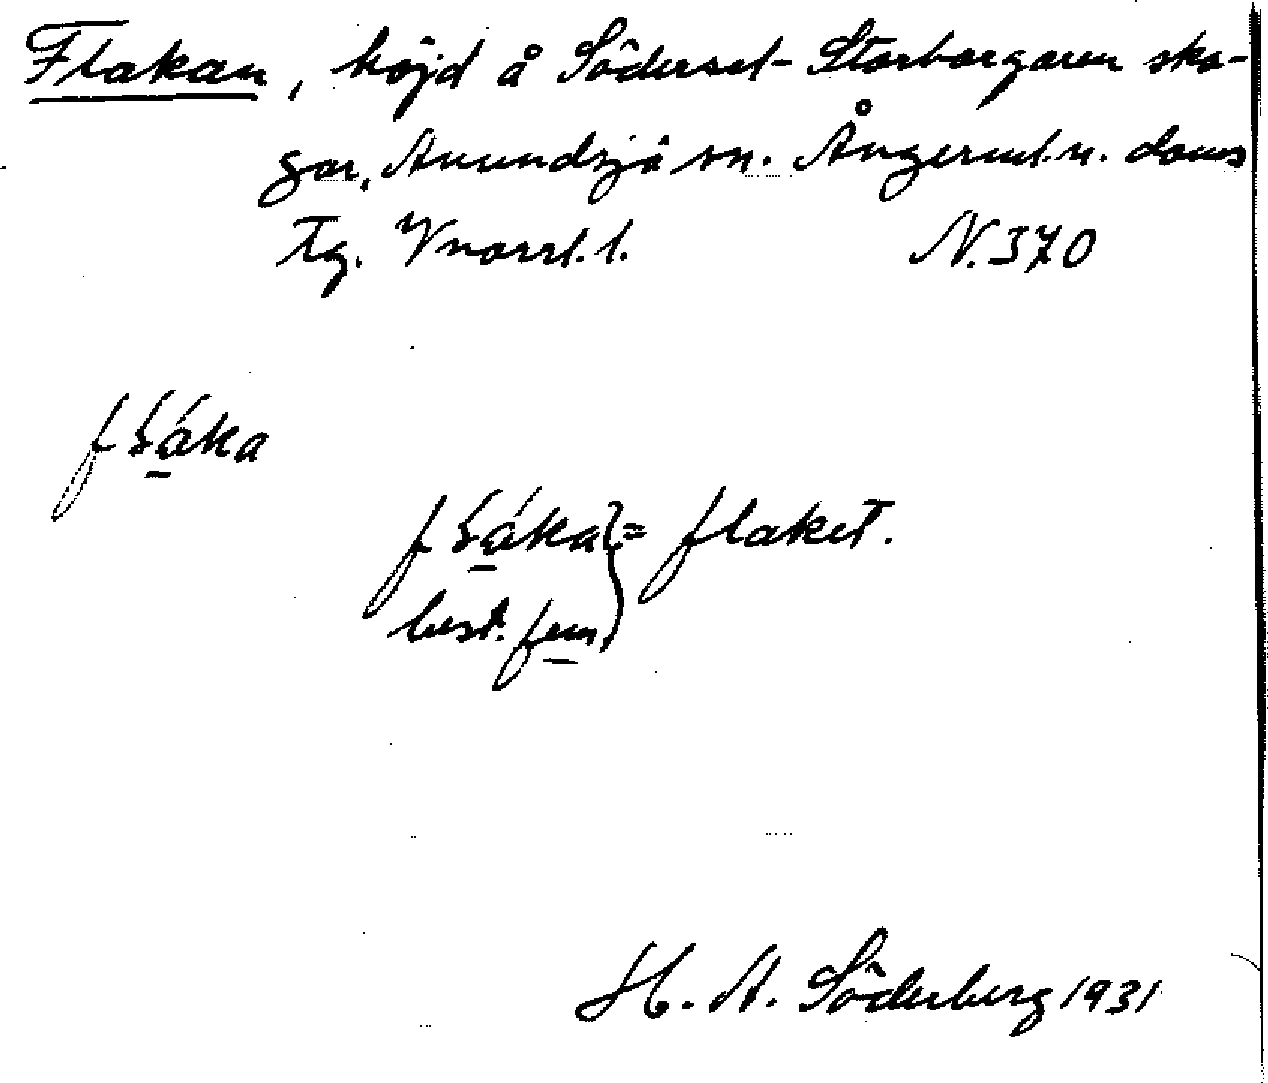 Flakan, höjd å Södersel-Storborgaren sko-
gar, Anundsjö sn. Ångerml.n. doms
tg. Vnorrl.l. N.370
fłáka
fłáka } = flaket.
best. fem.
H. A. Söderberg 1931